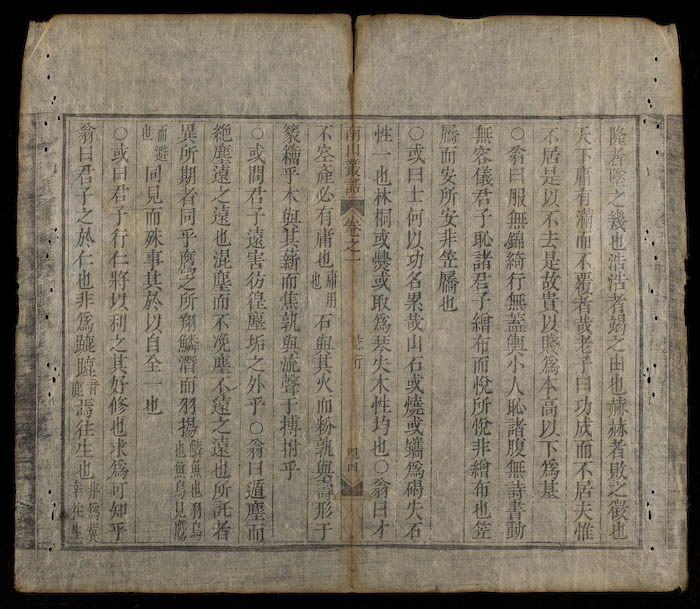 隆者墜之幾也浩浩者竭之由也赫赫者敗之徵也
天下庸有滿而不覆者哉老子曰功成而不居夫惟
不居是以不去是故貴以賤爲本高以下爲基
○翁曰服無錦綺行無蓋輿小人恥諸腹無詩書動
無容儀君子恥諸君子繪布而悅所悅非繪布也笠
屩而安所安非笠屩也
○或曰士何以功名累哉山石或燒或鑴爲碣失石
性一也林桐或爨或取爲琴失木性均也○翁曰才
南山叢語 卷之一 誌行 四
不空產必有庸也庸用也石與其火而粉孰與壽形于
篆籀乎木與其薪而焦孰與流聲于搏拊乎
○或問君子遠害彷徨塵垢之外乎○翁曰遁塵而
絕塵遠之遠也混塵而不浼塵不遠之遠也所託者
異所期者同乎鷹之所翔鱗潛而羽揚鱗魚也羽鳥也魚鳥見鷹
而避也同見而殊事其於以自全一也
○或曰君子行仁將以利之其好修也求爲可知乎
翁曰君子之於仁也非爲蹠蹠音鹿焉往生也非爲冀幸往生